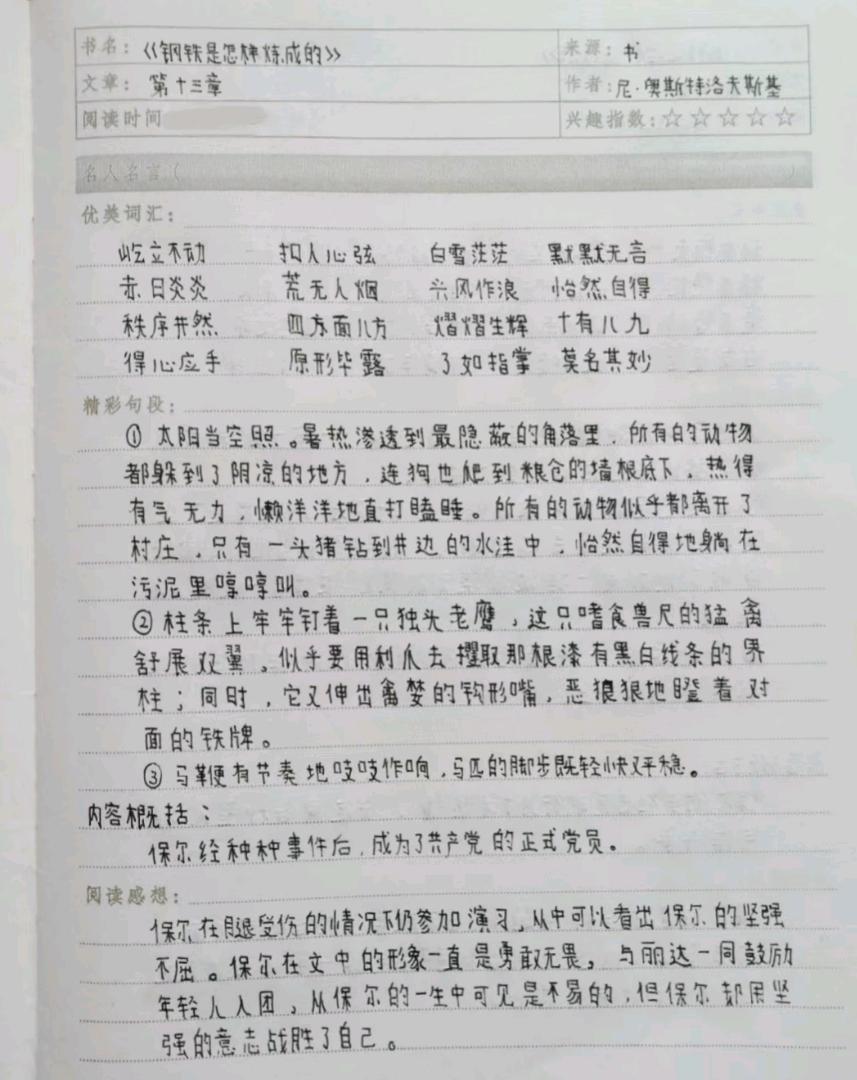 书名：《钢铁是怎样炼成的》 来源：书
文章：第十三章 作者：尼·奥斯特洛夫斯基
阅读时间 兴趣指数：☆☆☆☆☆
名人名言（ ）
优美词汇：
屹立不动 扣人心弦 白雪茫茫 默默无言
赤日炎炎 荒无人烟 兴风作浪 怡然自得
秩序井然 四方面八方 熠熠生辉 十有八九
得心应手 原形毕露 了如指掌 莫名其妙
精彩句段：
① 太阳当空照。暑热渗透到最隐蔽的角落里，所有的动物
都躲到了阴凉的地方，连狗也爬到粮仓的墙根底下，热得
有气无力，懒洋洋地直打瞌睡。所有的动物似乎都离开了
村庄，只有一头猪钻到井边的水洼中，怡然自得地躺在
污泥里哼哼叫。
② 柱条上牢牢钉着一只独头老鹰，这只嗜食兽尺的猛禽
舒展双翼，似乎要用利爪去攫取那根漆有黑白线条的界
柱；同时，它又伸出禽婪的钩形嘴，恶狼狠地瞪着对
面的铁牌。
③ 马鞭有节奏地吱吱作响，马匹的脚步既轻快又平稳。
内容概括：
保尔经种种事件后，成为了共产党的正式党员。
阅读感想：
保尔在腿受伤的情况下仍参加演习，从中可以看出保尔的坚强
不屈。保尔在文中的形象一直是勇敢无畏，与丽达一同鼓励
年轻人入团，从保尔的一生中可见是不易的，但保尔却用坚
强的意志战胜了自己。